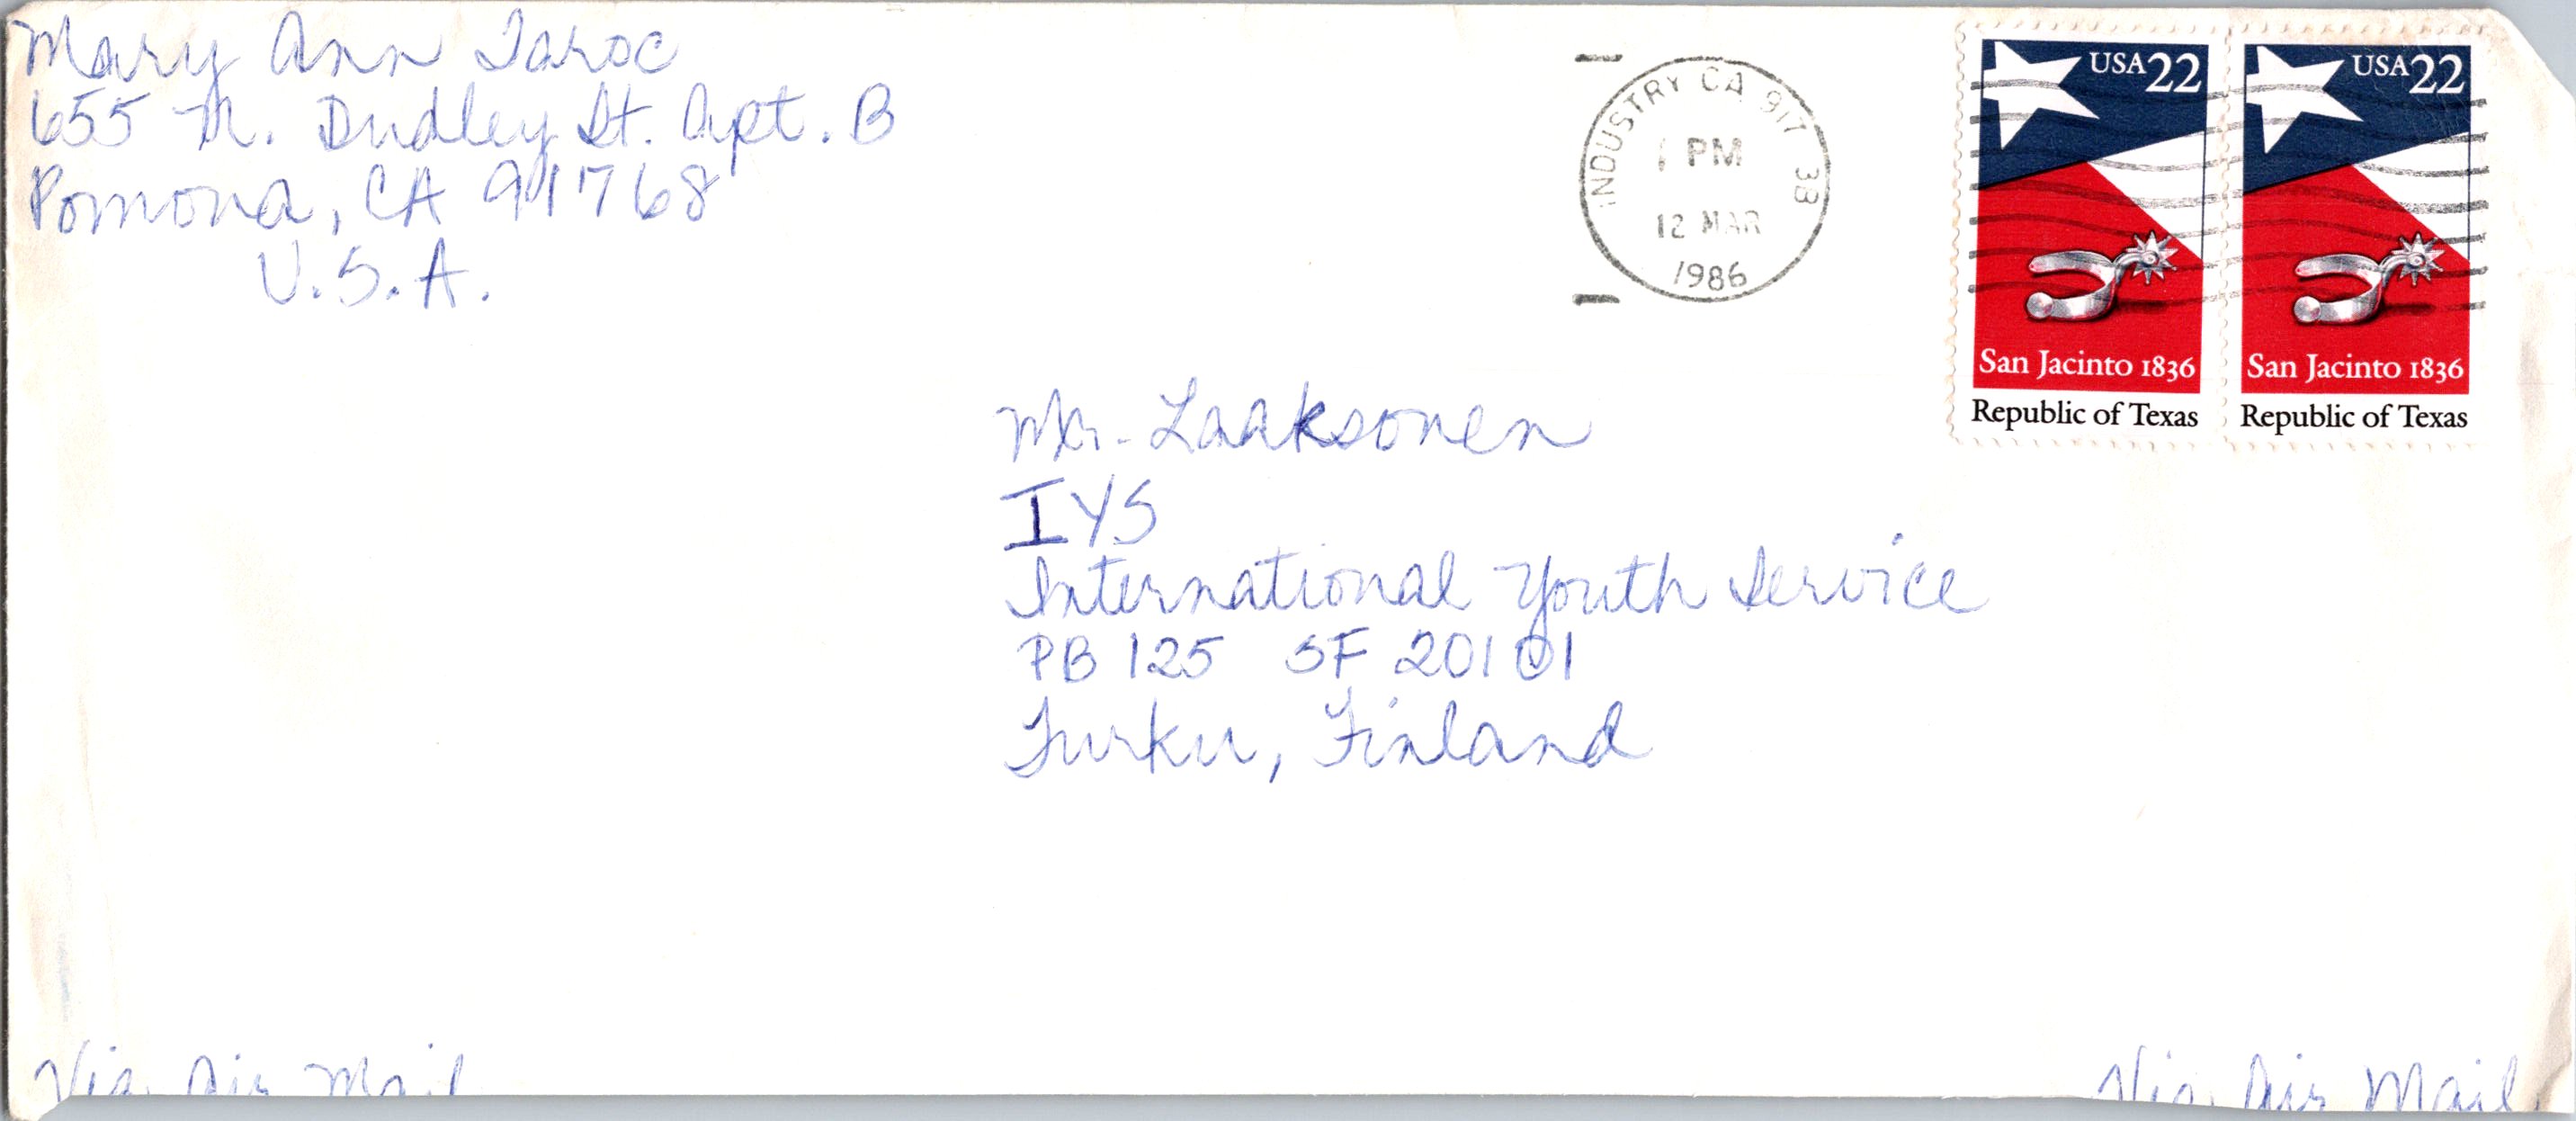 Mary Ann Taroc
655 N. Dudley St. Apt. B
Pomona, CA 91768
U.S.A.
INDUSTRY CA 917 3B
PM
12 MAR
1986
USA 22
San Jacinto 1836
Republic of Texas
USA 22
San Jacinto 1836
Republic of Texas
Mr. Laaksonen
IYS
International Youth Service
PB 125 SF 20101
Turku, Finland
Via Air Mail
Via Air Mail